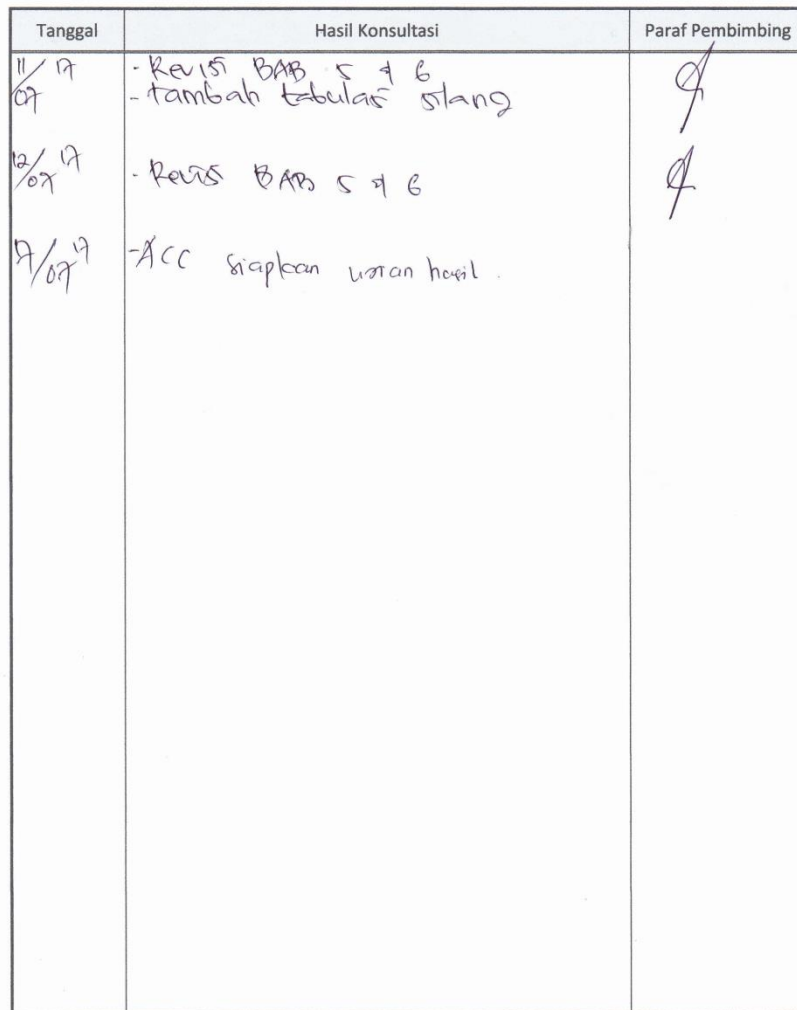 Tanggal Hasil Konsultasi Paraf Pembimbing
11/07 17 - Revisi BAB 5 & 6
- tambah tabulasi silang
12/07 17 - Revisi BAB 5 & 6
17/07 17 - ACC siapkan ujian hasil.